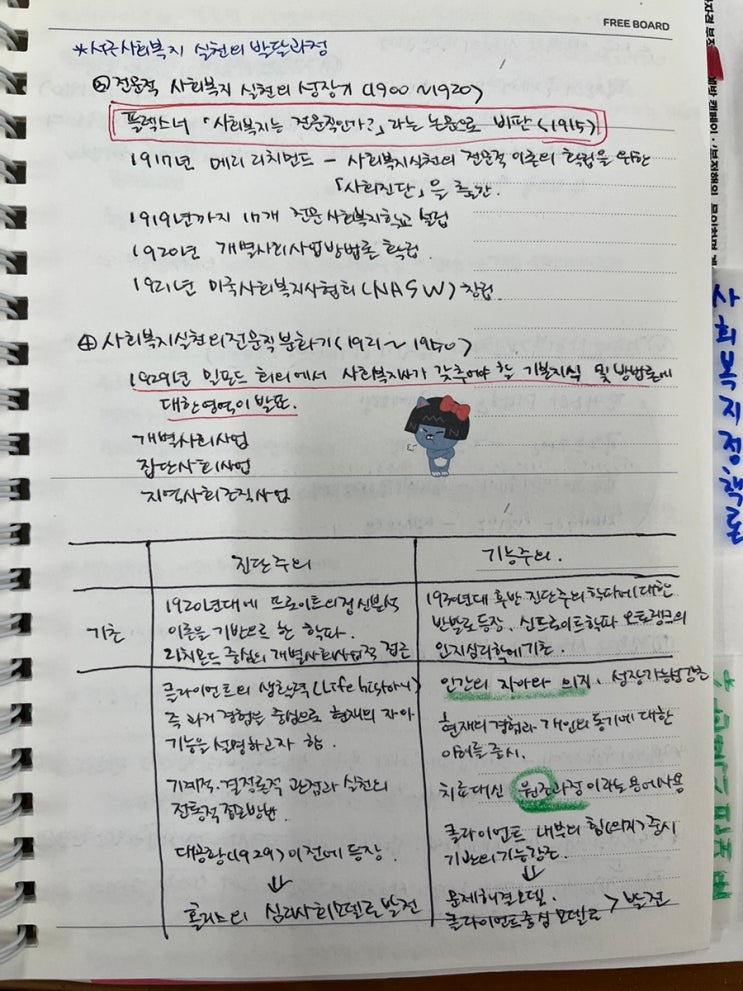 FREE BOARD
*서구사회복지 실천의 발달과정
③ 전문적 사회복지 실천의 성장기 (1900~1920)
플렉스너 「사회복지는 전문직인가?」라는 논문으로 비판 (1915)
1917년 메리 리치먼드 - 사회복지실천의 전문적 이론의 확립을 위한
「사회진단」을 출간.
1919년까지 17개 전문사회복지학교 설립
1920년 개별사회사업방법론 확립
1921년 미국사회복지사협회 (NASW) 창립
④ 사회복지실천의 전문직 분화기 (1921~1950)
1929년 밀포드 회의에서 사회복지사가 갖추어야 할 기본지식 및 방법론에
대한 영역이 발표.
개별사회사업
집단사회사업
지역사회조직사업
진단주의
기능주의.
기초
1920년대에 프로이트의 정신분석
이론을 기반으로 한 학파.
리치몬드 중심의 개별사회사업적 접근
1930년대 후반 진단주의 학파에 대한
반발로 등장. 신프로이트학파 오토랭크의
인지심리학에 기초.
클라이언트의 생활력 (Life history)
즉 과거 경험을 중심으로 현재의 자아
기능을 설명하고자 함.
기계적·결정론적 관점과 실천의
전통적 접근방법
대공황(1929) 이전에 등장.
⇓
홀리스의 심리사회모델로 발전
인간의 자아와 의지. 성장가능성 강조
현재의 경험과 개인의 동기에 대한
이해를 중시.
치료대신 원조과정 이라는 용어사용
클라이언트 내부의 힘(의지) 중시
기관의 기능강조.
⇓
문제해결모델.
클라이언트중심 모델로 > 발전
사회복지정책론